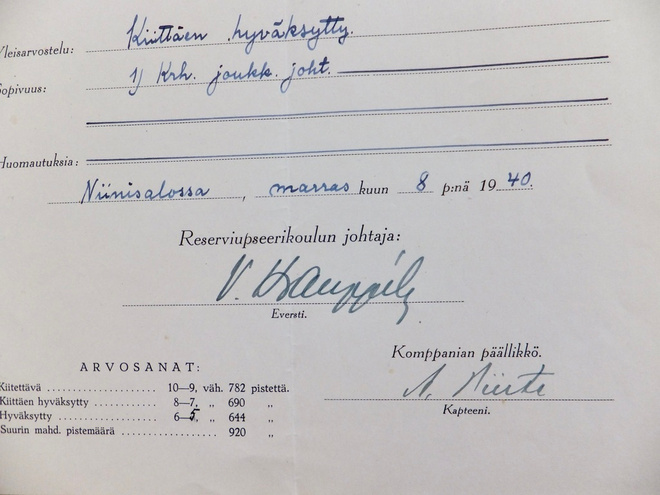 Yleisarvostelu: Kiittäen hyväksytty.
Sopivuus: 1) Krh. joukk. joht.
Huomautuksia:
Niinisalossa, marras kuun 8 p:nä 1940.
Reserviupseerikoulun johtaja:
V. Kauppila
Eversti.
Komppanian päällikkö.
A.
Kapteeni.
ARVOSANAT:
Kiitettävä .................... 10—9, väh. 782 pistettä.
Kiittäen hyväksytty ............ 8—7, „ 690 „
Hyväksytty .................... 6—5, „ 644 „
Suurin mahd. pistemäärä ................. 920 „